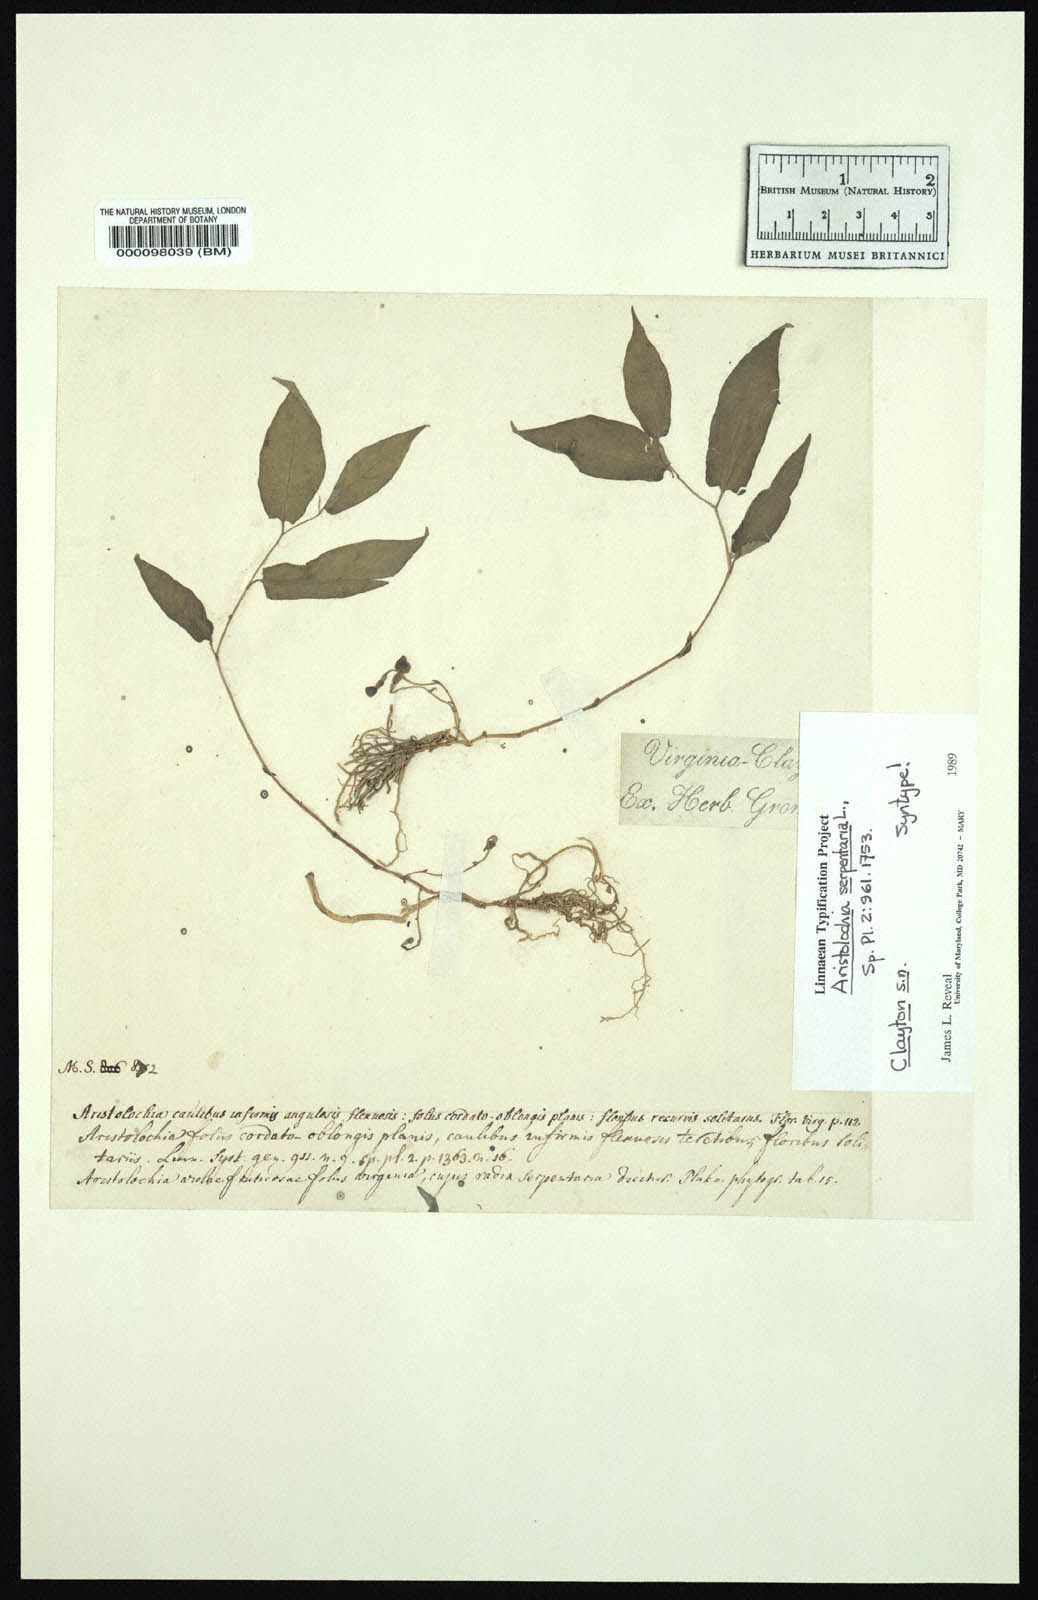 THE NATURAL HISTORY MUSEUM, LONDON
DEPARTMENT OF BOTANY
000098039 (BM)
1 2
BRITISH MUSEUM (NATURAL HISTORY)
1 2 3 4 5
HERBARIUM MUSEI BRITANNICI
Virginia-Clay
Ex. Herb. Gron
Linnaean Typification Project
Aristolochia serpentaria L.,
Sp. Pl. 2: 961. 1753.
Clayton s.n. Syntype!
James L. Reveal 1989
University of Maryland, College Park, MD 20742 – MARY
M. S. 872
Aristolochia caulibus infirmis angulosis flexuosis: foliis cordato-oblongis planis: floribus recurvis solitariis. Flor. Virg. p. 112.
Aristolochia foliis cordato-oblongis planis, caulibus infirmis flexuosis teretibus, floribus soli-
tariis. Linn. Syst. gen. 911. n. 9. sp. pl. 2. p. 1363. n. 16.
Aristolochia violae fruticosae foliis virginia, cujus radix Serpentaria dicitur. Pluk. phytogr. tab. 15.